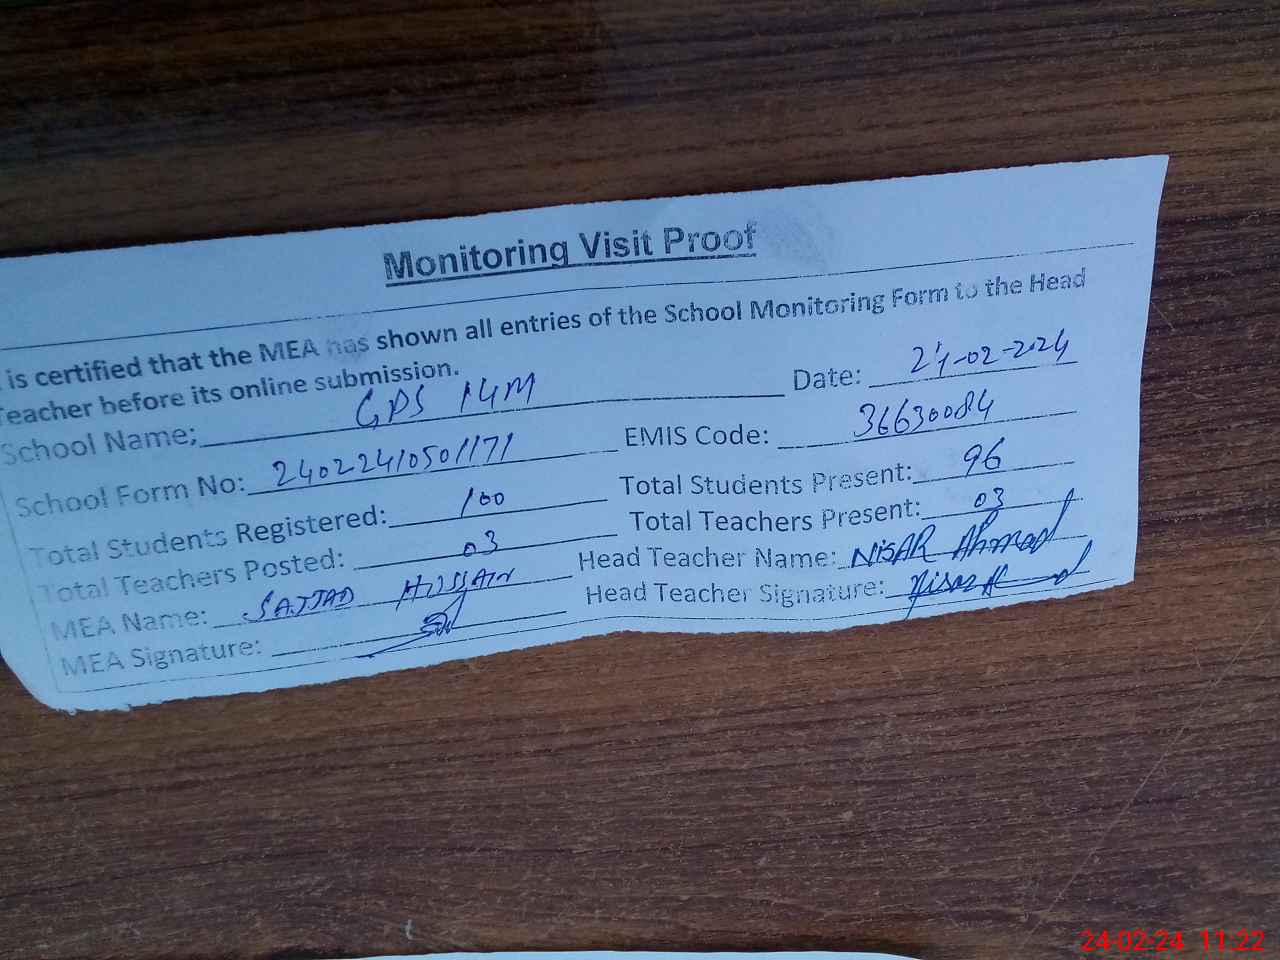 Monitoring Visit Proof
is certified that the MEA has shown all entries of the School Monitoring Form to the Head
Teacher before its online submission.
School Name: GPS 14M Date: 24-02-2024
School Form No: 24022410501171 EMIS Code: 36630084
Total Students Registered: 100 Total Students Present: 96
Total Teachers Posted: 03 Total Teachers Present: 03
MEA Name: SAJJAD HUSSAIN Head Teacher Name: NISAR Ahmad
MEA Signature: Head Teacher Signature:
24-02-24 11:22